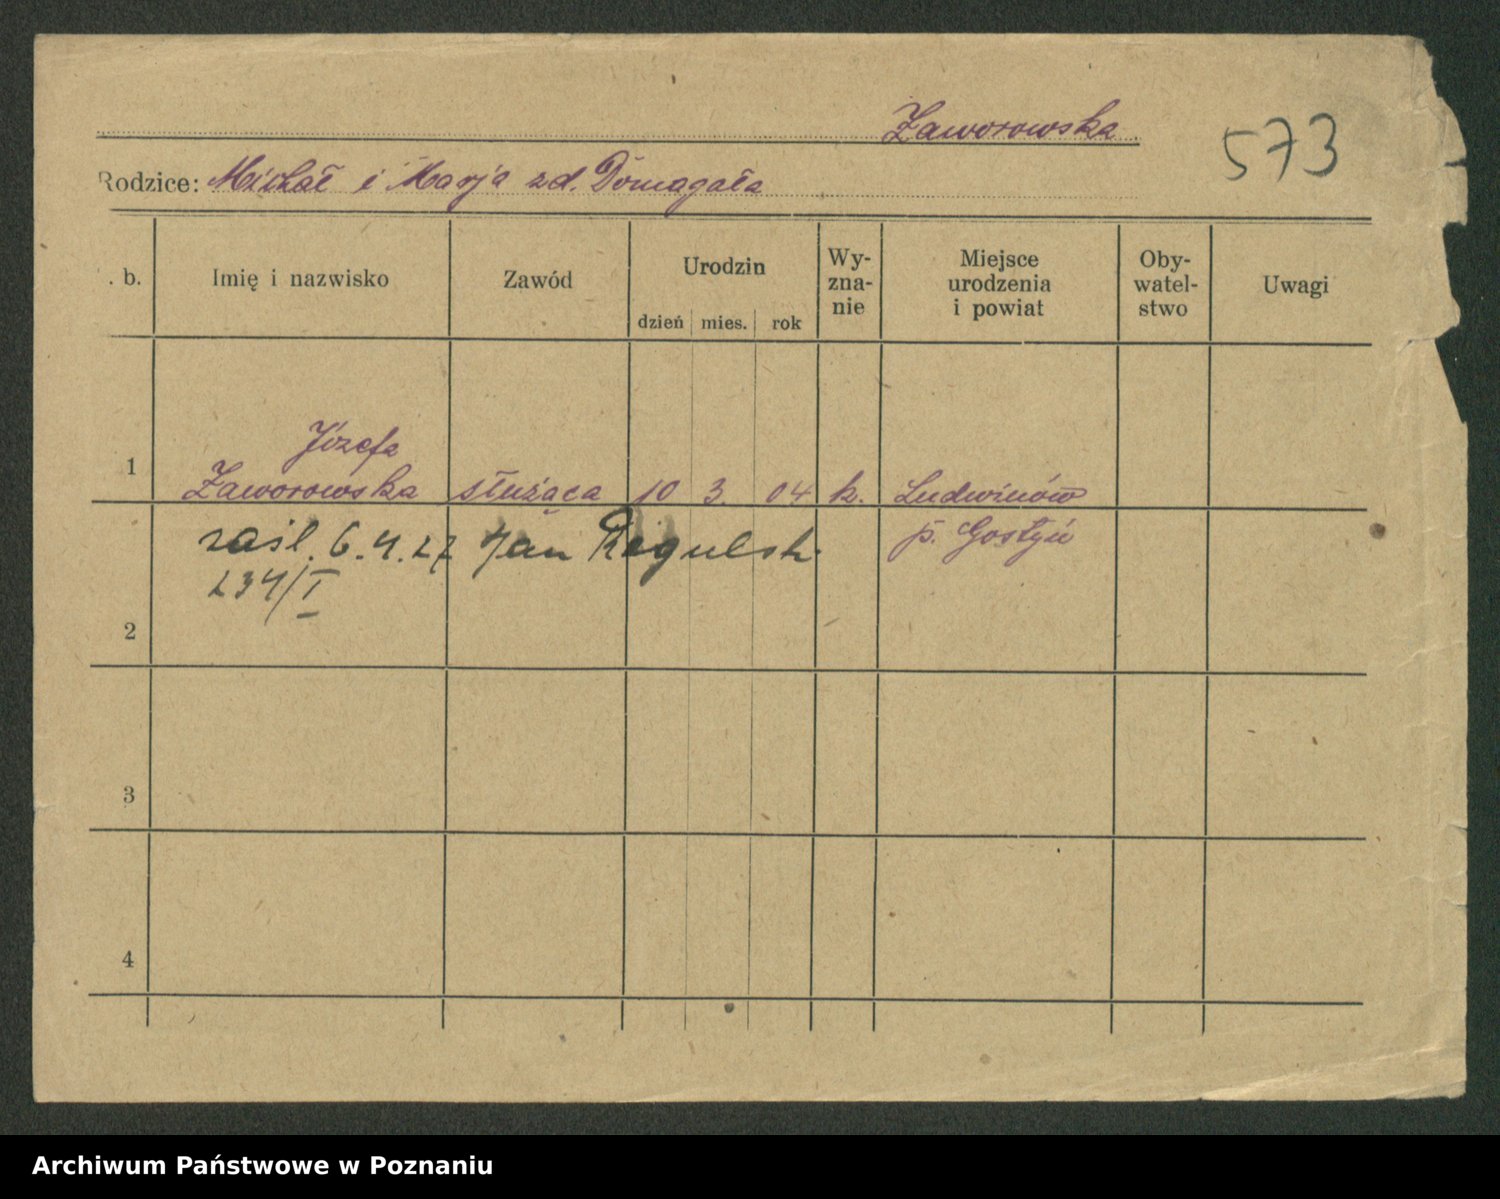 Zaworowska
573
Rodzice: Michał i Marja zd. Domagała
. b. Imię i nazwisko Zawód Urodzin dzień mies. rok Wy-zna-nie Miejsce urodzenia i powiat Oby-watel-stwo Uwagi
Józefa
1 Zaworowska służąca 10 3. 04 k. Ludwinów
p. Gostyń
zaśl. 6.4.27 Jan Regulski
234/I
2
3
4
Archiwum Państwowe w Poznaniu